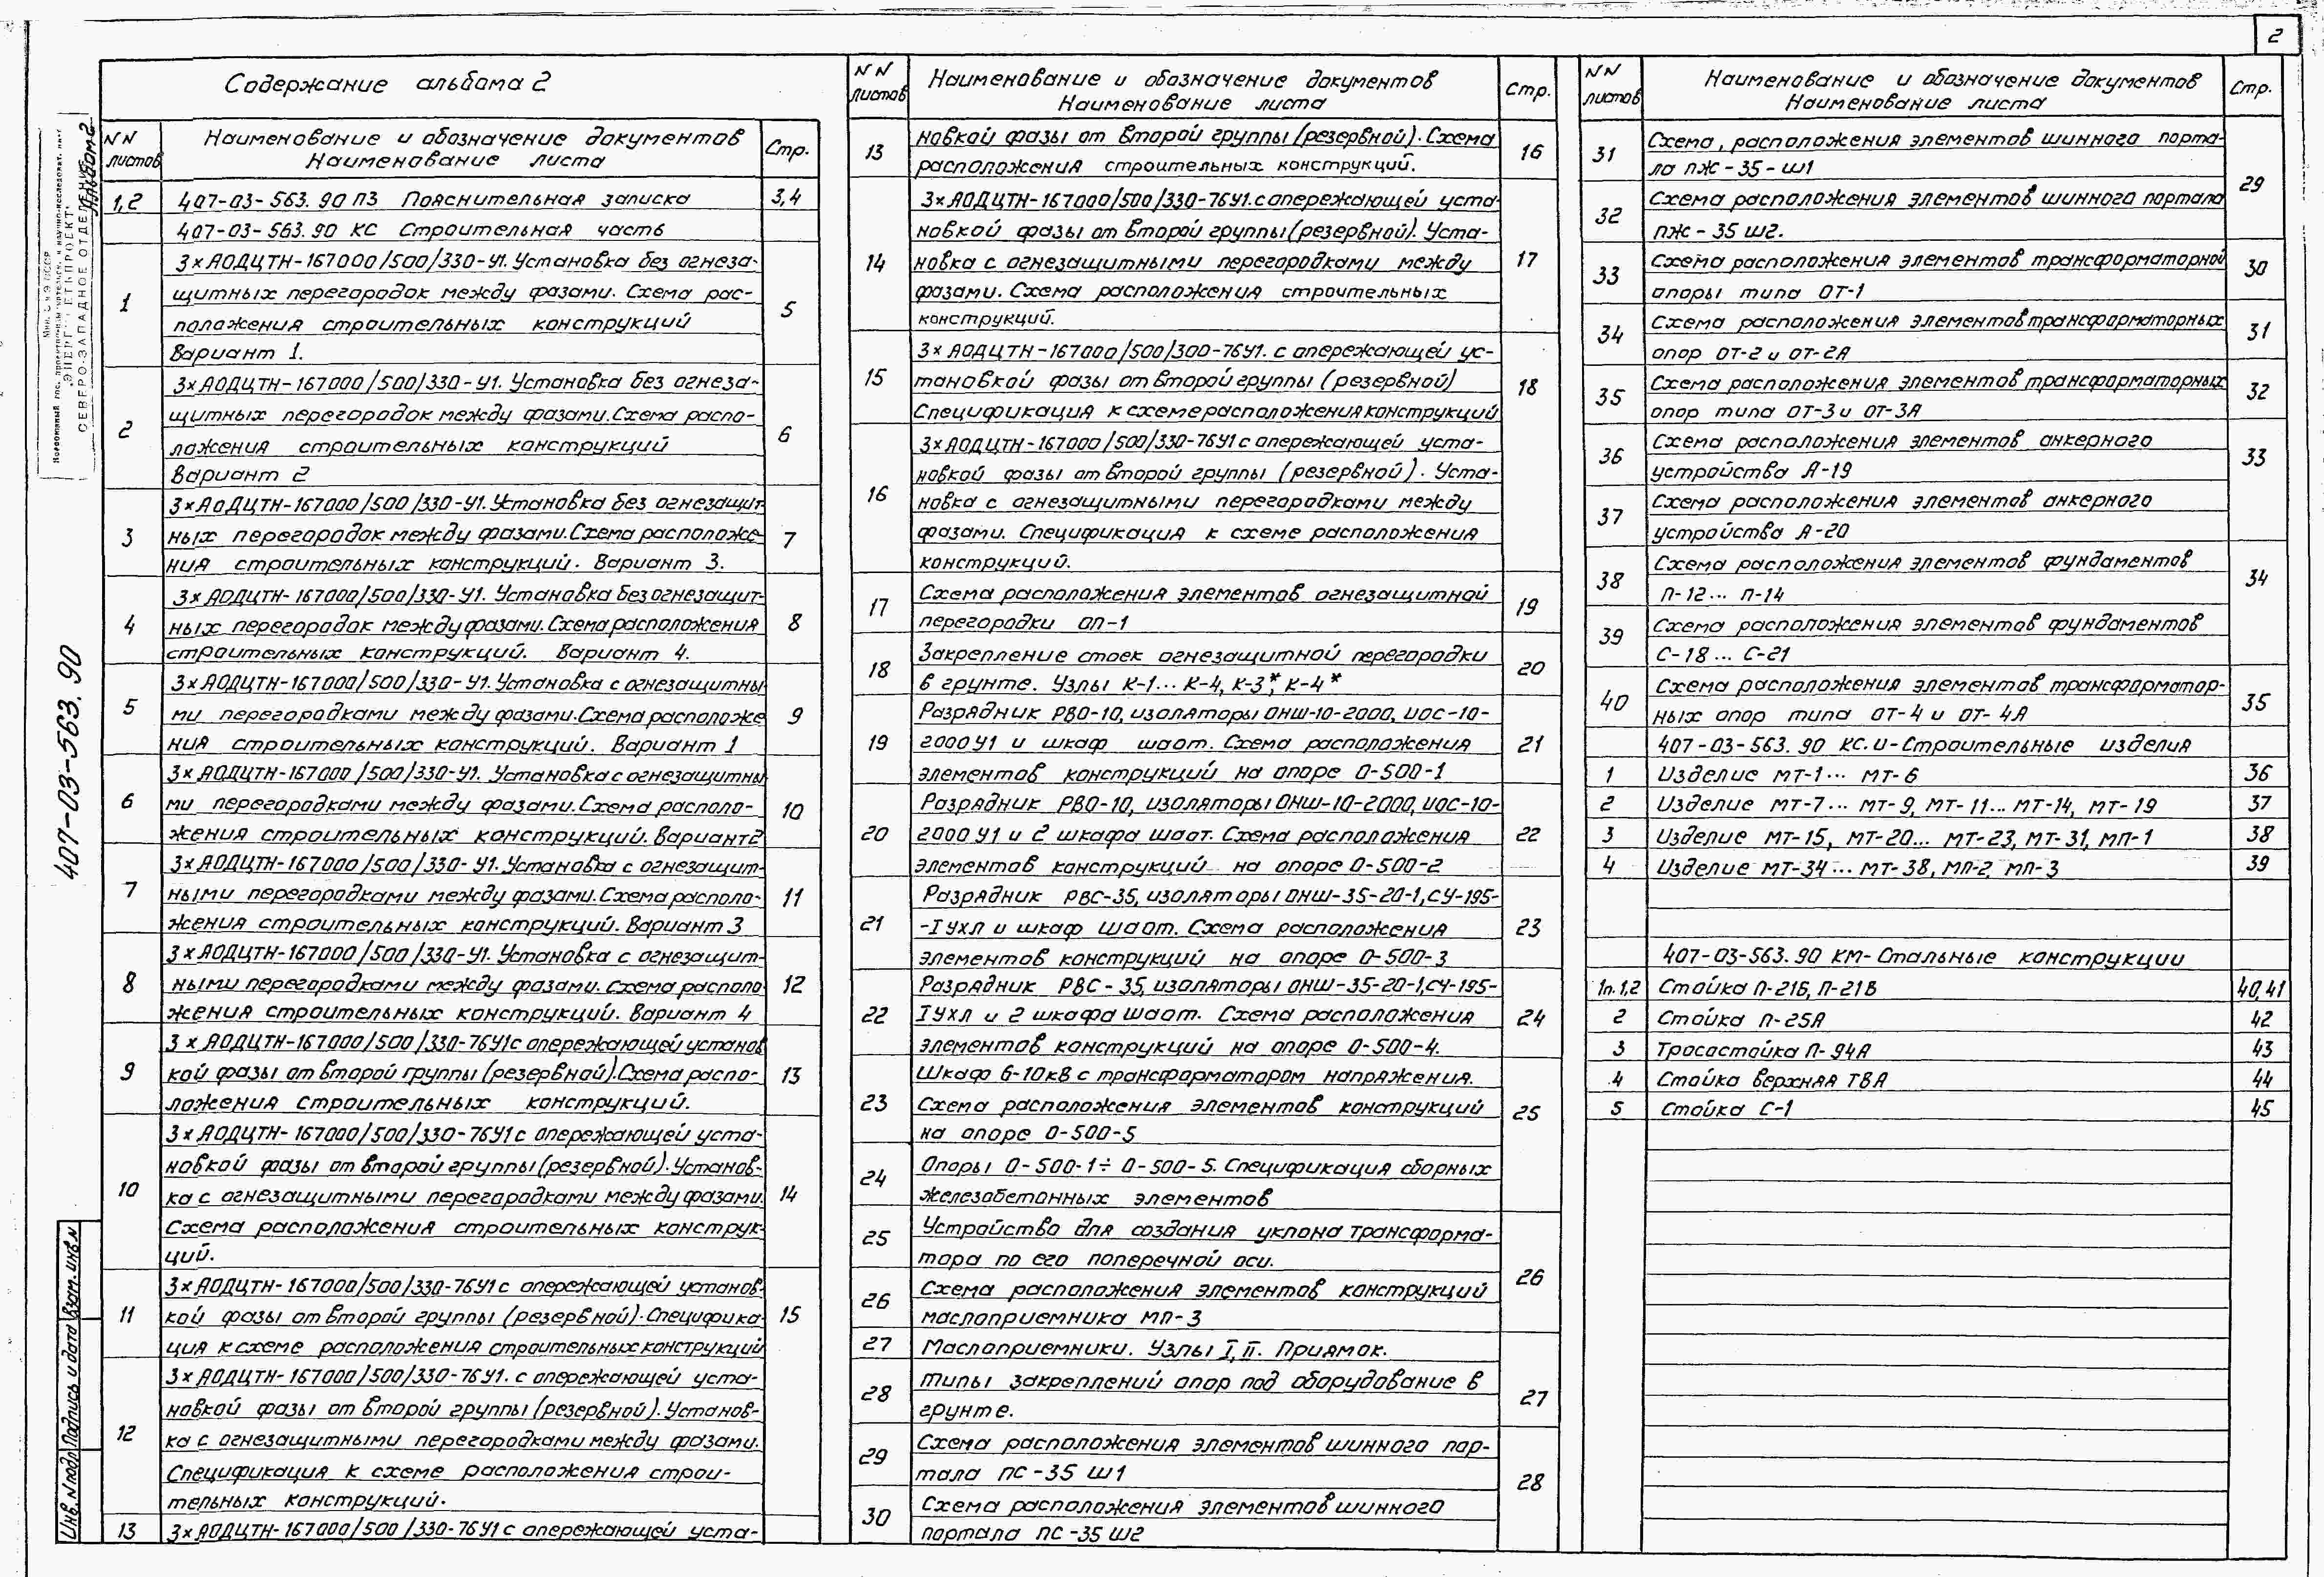 2
Содержание альбома 2
NN листов
Наименование и обозначение документов
Наименование листа
Стр.
1,2 407-03-563.90 ПЗ Пояснительная записка 3,4
407-03-563.90 КС Строительная часть
3×АОДЦТН-167000/500/330-У1. Установка без огнеза-
щитных перегородок между фазами. Схема рас-
1 положения строительных конструкций 5
Вариант 1.
3×АОДЦТН-167000/500/330-У1. Установка без огнеза-
щитных перегородок между фазами. Схема распо-
2 ложения строительных конструкций 6
Вариант 2
3×АОДЦТН-167000/500/330-У1. Установка без огнезащит-
3 ных перегородок между фазами. Схема расположе- 7
ния строительных конструкций. Вариант 3.
3×АОДЦТН-167000/500/330-У1. Установка без огнезащит-
4 ных перегородок между фазами. Схема расположения 8
строительных конструкций. Вариант 4.
3×АОДЦТН-167000/500/330-У1. Установка с огнезащитны-
5 ми перегородками между фазами. Схема расположе 9
ния строительных конструкций. Вариант 1
3×АОДЦТН-167000/500/330-У1. Установка с огнезащитны
6 ми перегородками между фазами. Схема располо- 10
жения строительных конструкций. Вариант 2
3×АОДЦТН-167000/500/330-У1. Установка с огнезащит-
7 ными перегородками между фазами. Схема располо- 11
жения строительных конструкций. Вариант 3
3×АОДЦТН-167000/500/330-У1. Установка с огнезащит-
8 ными перегородками между фазами. Схема располо 12
жения строительных конструкций. Вариант 4
3×АОДЦТН-167000/500/330-76У1 с опережающей установ
9 кой фазы от второй группы (резервной). Схема распо- 13
ложения строительных конструкций.
3×АОДЦТН-167000/500/330-76У1 с опережающей уста-
новкой фазы от второй группы (резервной). Установ-
10 ка с огнезащитными перегородками между фазами. 14
Схема расположения строительных конструк-
ций.
3×АОДЦТН-167000/500/330-76У1 с опережающей установ-
11 кой фазы от второй группы (резервной). Специфика- 15
ция к схеме расположения строительных конструкций
3×АОДЦТН-167000/500/330-76У1. с опережающей уста-
новкой фазы от второй группы (резервной). Установ-
12 ка с огнезащитными перегородками между фазами.
Спецификация к схеме расположения строи-
тельных конструкций.
13 3×АОДЦТН-167000/500/330-76У1 с опережающей уста-
NN листов
Наименование и обозначение документов
Наименование листа
Стр.
13 новкой фазы от второй группы (резервной). Схема 16
расположения строительных конструкций.
3×АОДЦТН-167000/500/330-76У1. с опережающей уста-
новкой фазы от второй группы (резервной). Уста-
14 новка с огнезащитными перегородками между 17
фазами. Схема расположения строительных
конструкций.
3×АОДЦТН-167000/500/300-76У1. с опережающей ус-
15 тановкой фазы от второй группы (резервной) 18
Спецификация к схеме расположения конструкций
3×АОДЦТН-167000/500/330-76У1 с опережающей уста-
новкой фазы от второй группы (резервной). Уста-
16 новка с огнезащитными перегородками между
фазами. Спецификация к схеме расположения
конструкций.
17 Схема расположения элементов огнезащитной 19
перегородки ОП-1
18 Закрепление стоек огнезащитной перегородки 20
в грунте. Узлы К-1... К-4, К-3*, К-4*
Разрядник РВО-10, изоляторы ОНШ-10-2000, ИОС-10-
19 2000 У1 и шкаф ШАОТ. Схема расположения 21
элементов конструкций на опоре О-500-1
Разрядник РВО-10, изоляторы ОНШ-10-2000, ИОС-10-
20 2000 У1 и 2 шкафа ШАОТ. Схема расположения 22
элементов конструкций на опоре О-500-2
Разрядник РВС-35, изоляторы ОНШ-35-20-1, СУ-195-
21 -I УХЛ и шкаф ШАОТ. Схема расположения 23
элементов конструкций на опоре О-500-3
Разрядник РВС-35, изоляторы ОНШ-35-20-1, СЧ-195-
22 I УХЛ и 2 шкафа ШАОТ. Схема расположения 24
элементов конструкций на опоре О-500-4.
Шкаф 6-10кВ с трансформатором напряжения.
23 Схема расположения элементов конструкций 25
на опоре О-500-5
24 Опоры О-500-1÷О-500-5. Спецификация сборных
железобетонных элементов
25 Устройство для создания уклона трансформа-
тора по его поперечной оси.
26
26 Схема расположения элементов конструкций
маслоприемника МП-3
27 Маслоприемники. Узлы I, II. Приямок.
28 Типы закреплений опор под оборудование в 27
грунте.
29 Схема расположения элементов шинного пор-
тала ПС-35 Ш1
28
30 Схема расположения элементов шинного
портала ПС-35 Ш2
NN листов
Наименование и обозначение документов
Наименование листа
Стр.
31 Схема, расположения элементов шинного порта-
ла ПЖ-35-Ш1
29
32 Схема расположения элементов шинного портала
ПЖ-35 Ш2.
33 Схема расположения элементов трансформаторной 30
опоры типа ОТ-1
34 Схема расположения элементов трансформаторных 31
опор ОТ-2 и ОТ-2А
35 Схема расположения элементов трансформаторных 32
опор типа ОТ-3 и ОТ-3А
36 Схема расположения элементов анкерного 33
устройства А-19
37 Схема расположения элементов анкерного
устройства А-20
38 Схема расположения элементов фундаментов 34
П-12... П-14
39 Схема расположения элементов фундаментов
С-18... С-21
40 Схема расположения элементов трансформатор- 35
ных опор типа ОТ-4 и ОТ-4А
407-03-563.90 КС.И-Строительные изделия
1 Изделие МТ-1... МТ-6 36
2 Изделие МТ-7... МТ-9, МТ-11... МТ-14, МТ-19 37
3 Изделие МТ-15, МТ-20... МТ-23, МТ-31, МП-1 38
4 Изделие МТ-34... МТ-38, МП-2, МП-3 39
407-03-563.90 КМ-Стальные конструкции
1л.1,2 Стойка П-21Б, П-21В 40,41
2 Стойка П-25А 42
3 Тросостойка П-94А 43
4 Стойка верхняя ТВА 44
5 Стойка С-1 45
СЕВЕРО-ЗАПАДНОЕ ОТДЕЛЕНИЕ
Альбом 2
407-03-563.90
Инв.N подл. Подпись и дата Взам.инв.N